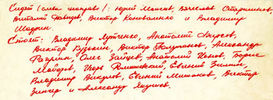 Сидят (слева направо): Юрий Моисеев, Вячеслав Старшинов,
Виталий Давыдов, Виктор Коноваленко и Владимир
Юрзинов
Стоят: Владимир Лутченко, Анатолий Фирсов,
Виктор Кузькин, Виктор Полупанов, Александр
Рагулин, Олег Зайцев, Анатолий Ионов, Борис
Майоров, Игорь Ромишевский, Евгений Зимин,
Владимир Викулов, Евгений Мишаков, Виктор
Зингер и Александр Якушев.